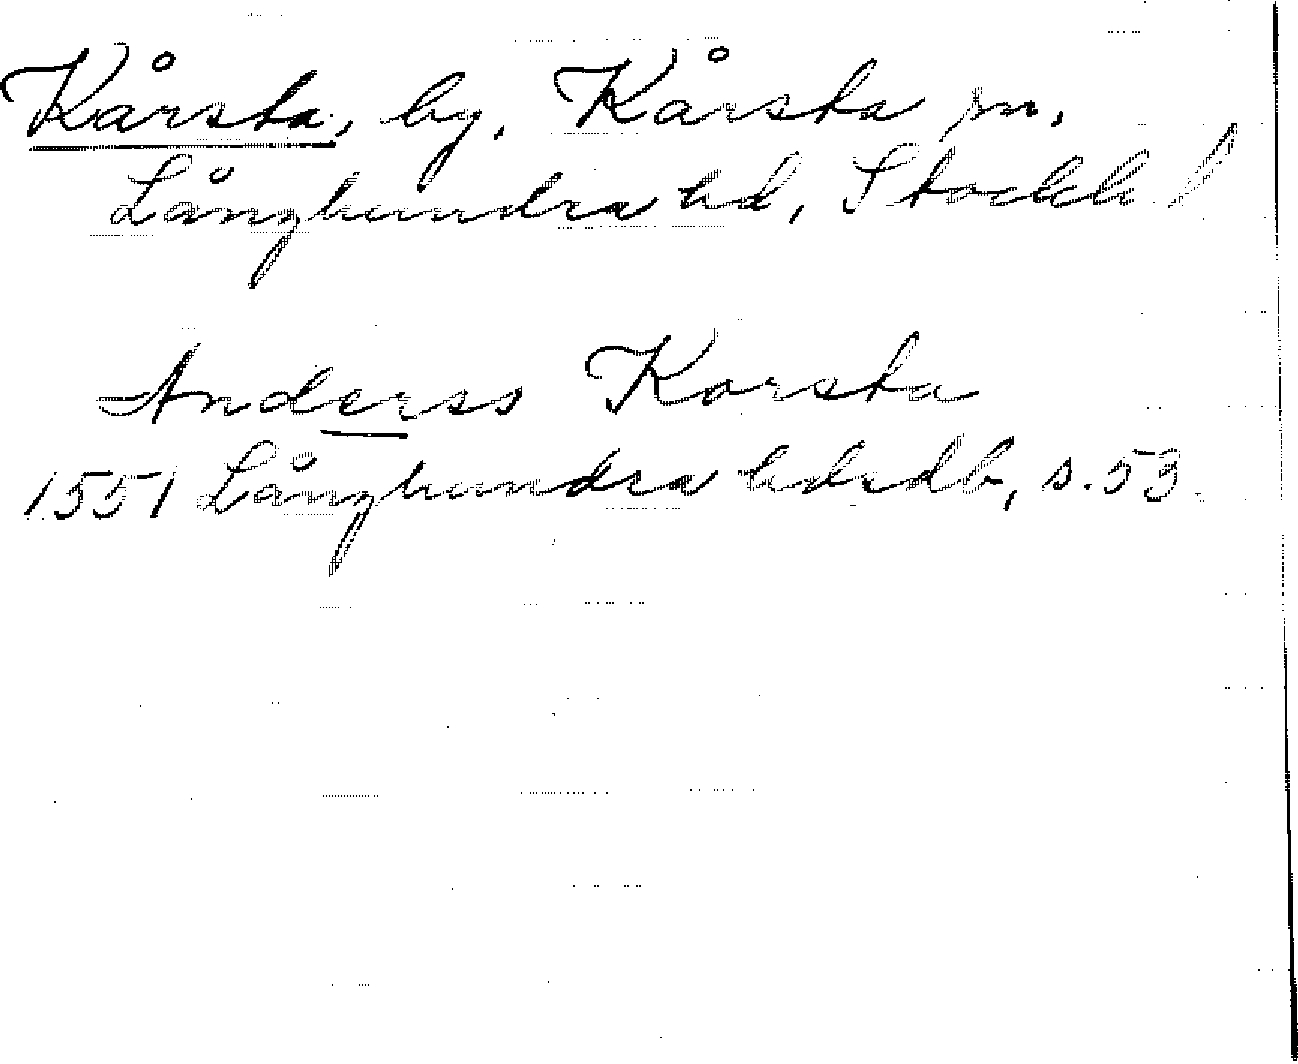 Kårsta, by, Kårsta sn,
Långhundra hd, Stockh l
Anderss Korsta
1551 Långhundra hdsdb, s. 53.